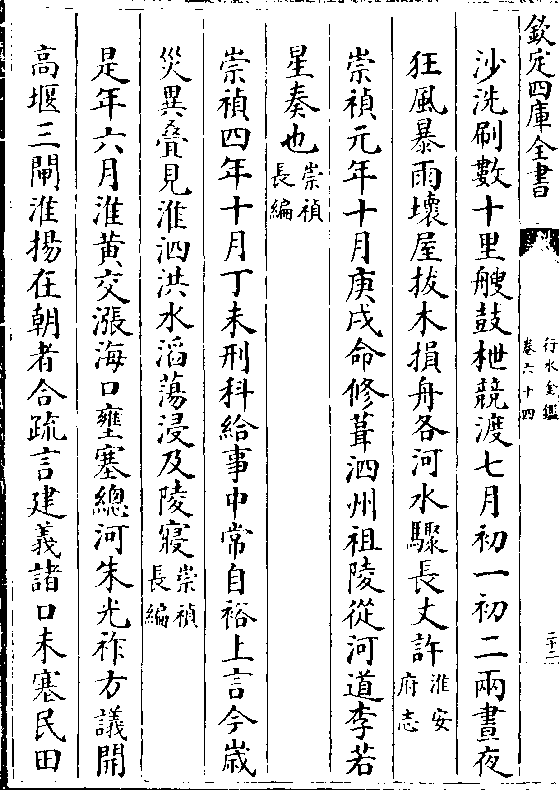 欽定四庫全書
行水金鑑
卷六十四
二十二
沙洗刷數十里艘鼓枻競渡七月初一初二兩晝夜
狂風暴雨壞屋拔木損舟各河水驟長丈許淮安府志
崇禎元年十月庚戌命修葺泗州祖陵從河道李若
星奏也崇禎長編
崇禎四年十月丁未刑科給事中常自裕上言今歲
災異叠見淮泗洪水滔蕩浸及陵寢崇禎長編
是年六月淮黃交漲海口壅塞總河朱光祚方議開
高堰三閘淮揚在朝者合疏言建義諸口未塞民田